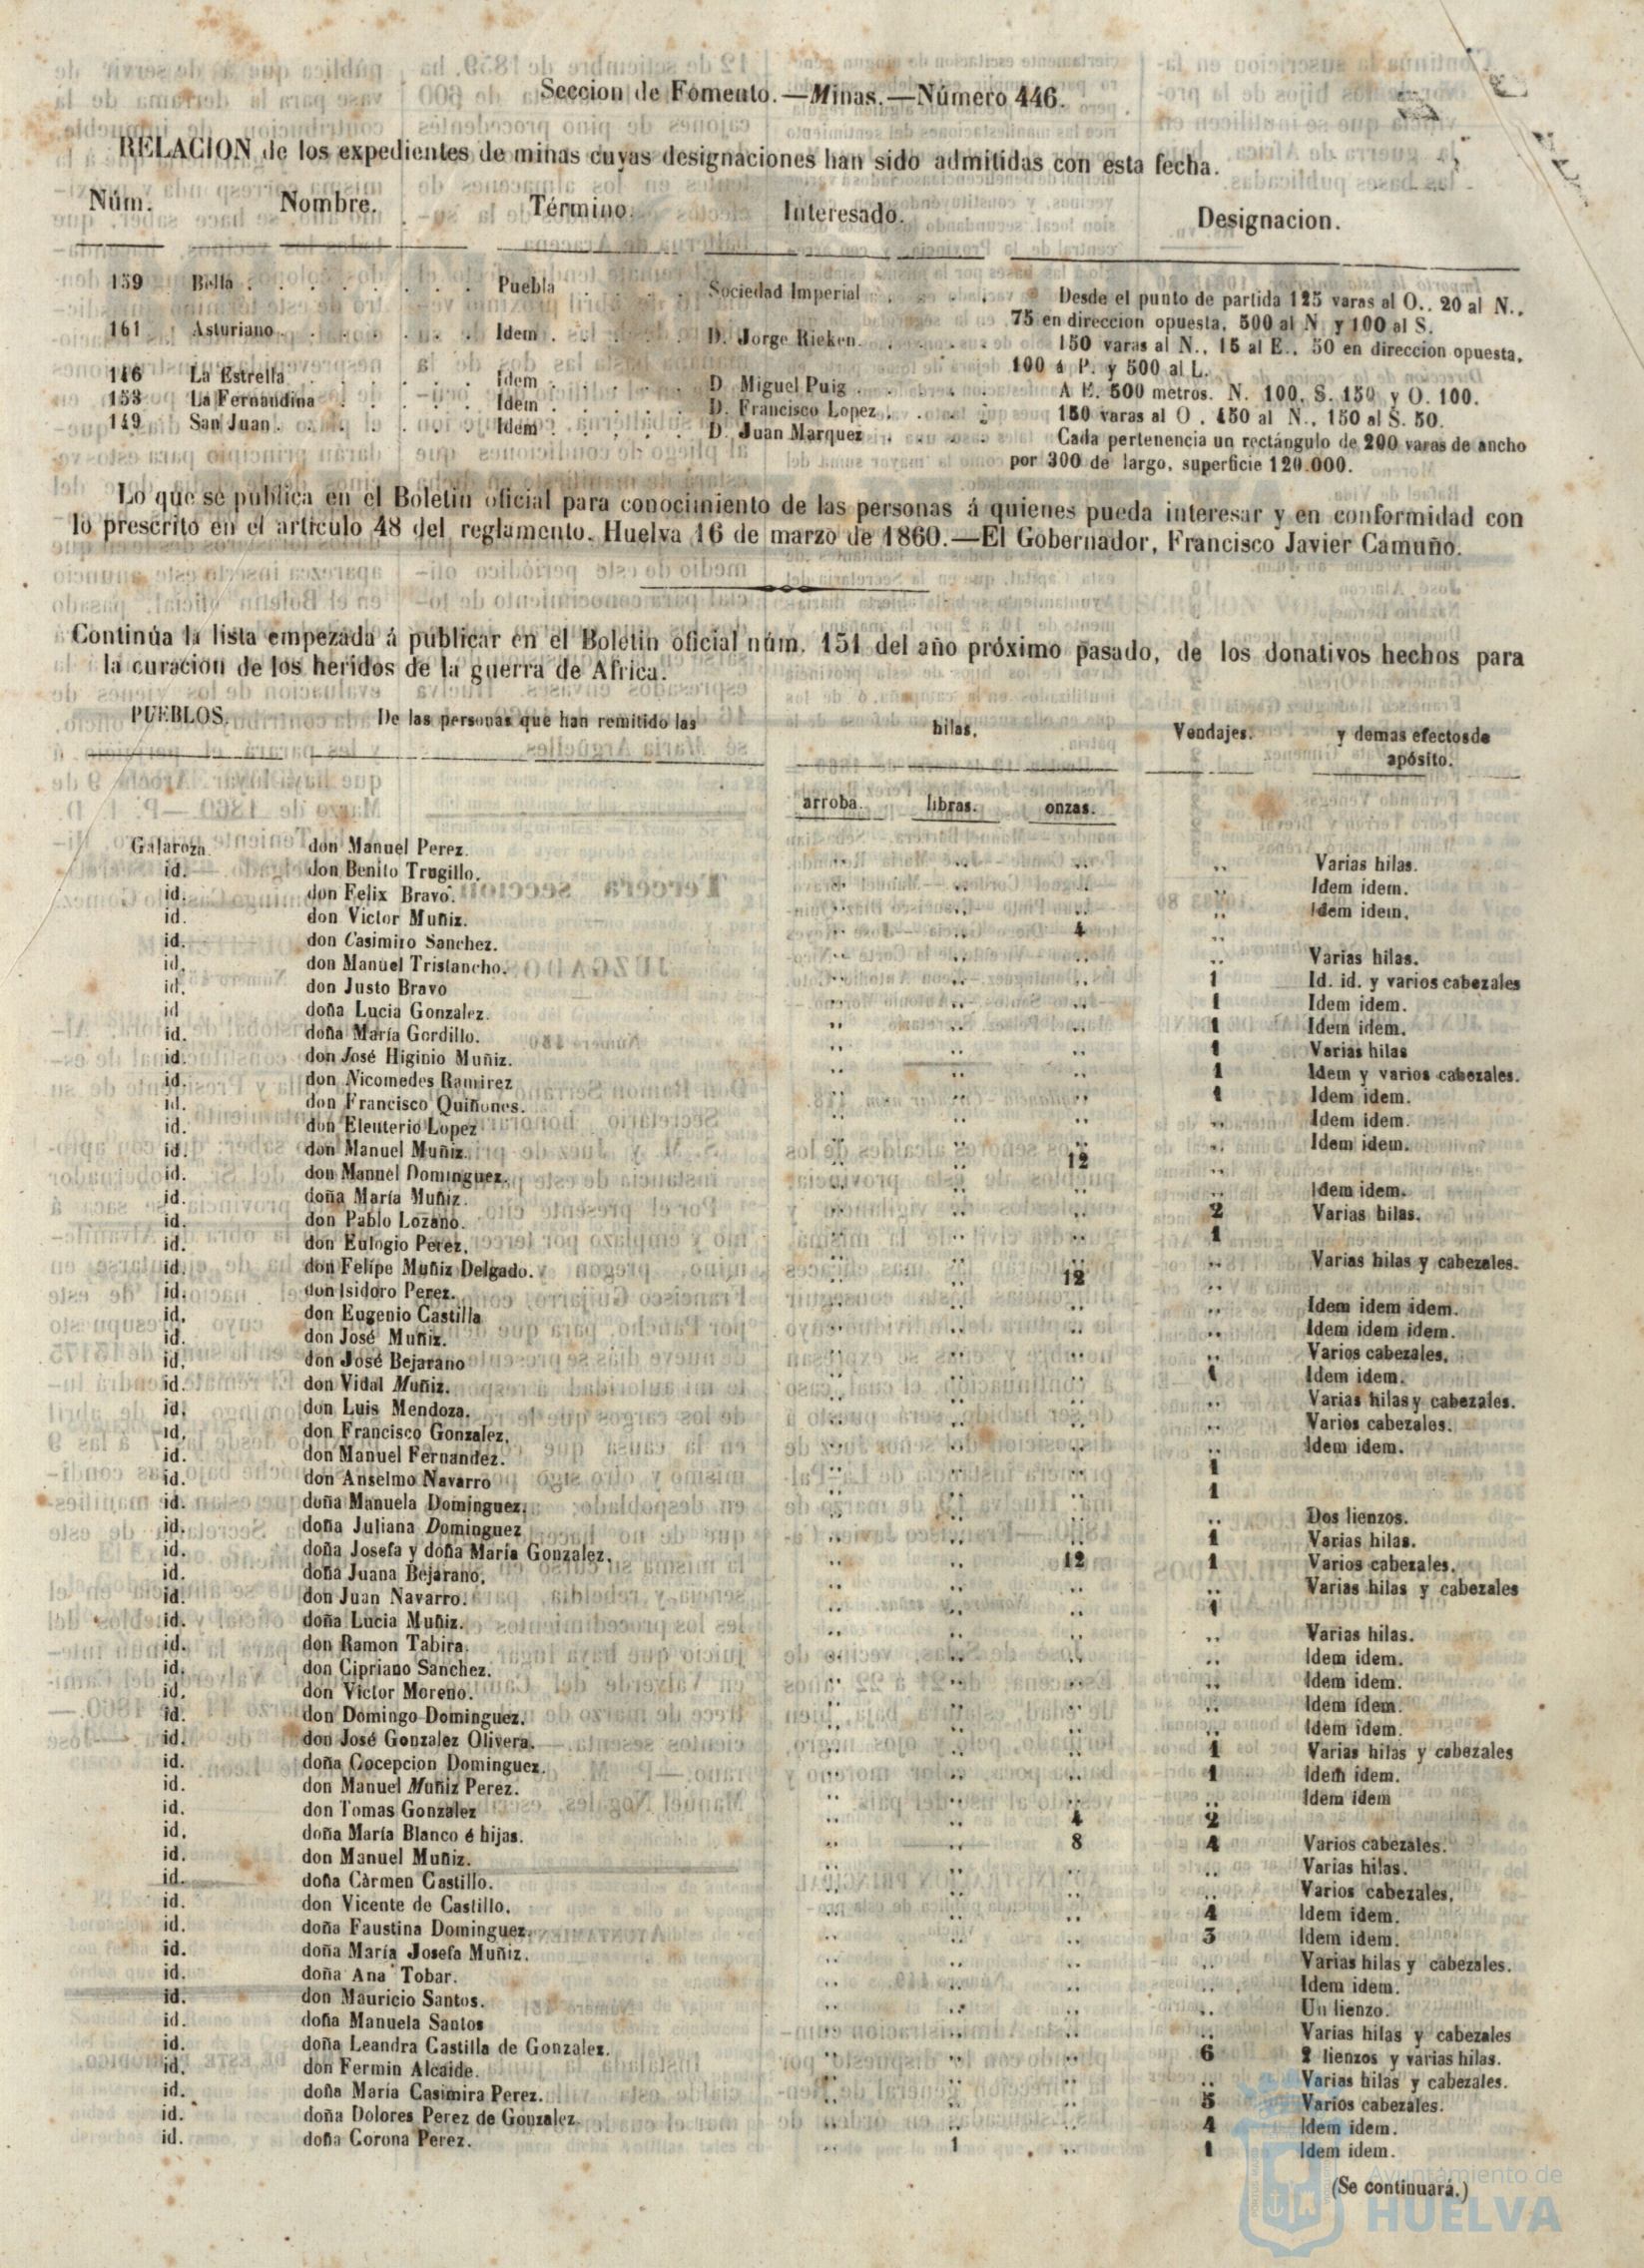 Seccion de Fomento.—Minas.—Número 446.
RELACION de los expedientes de minas cuyas designaciones han sido admitidas con esta fecha.
Núm. Nombre. Término. Interesado. Designacion.
159 Bella . . . . . . . Puebla . . . . Sociedad Imperial . . . . Desde el punto de partida 125 varas al O.. 20 al N.,
75 en direccion opuesta, 500 al N y 100 al S.
161 Asturiano . . . . . . Idem . . . . . D. Jorge Rieken. . . . . 150 varas al N., 15 al E., 50 en direccion opuesta,
100 á P. y 500 al L.
146 La Estrella . . . . . . Idem . . . . . D Miguel Puig . . . . A E. 500 metros. N. 100, S. 150 y O. 100.
153 La Fernandina . . . . . Idem . . . . . D. Francisco Lopez . . . . 150 varas al O . 450 al N., 150 al S. 50.
149 San Juan . . . . . . Idem . . . . . D. Juan Marquez . . . . Cada pertenencia un rectángulo de 200 varas de ancho
por 300 de largo, superficie 120.000.
Lo que se publica en el Boletin oficial para conocimiento de las personas á quienes pueda interesar y en conformidad con
lo prescrito en el artículo 48 del reglamento. Huelva 16 de marzo de 1860.—El Gobernador, Francisco Javier Camuño.
Continúa la lista empezada á publicar en el Boletin oficial núm. 151 del año próximo pasado, de los donativos hechos para
la curacion de los heridos de la guerra de Africa.
PUEBLOS. De las personas que han remitido las hilas. Vendajes. y demas efectos de
apósito.
arroba. libras. onzas.
Galaroza don Manuel Perez. .. .. .. .. Varias hilas.
id. don Benito Trugillo. .. .. .. .. Idem idem.
id. don Felix Bravo. .. .. .. .. Idem idem.
id. don Victor Muñiz. .. .. 4 ..
id. don Casimiro Sanchez. .. .. .. .. Varias hilas.
id. don Manuel Tristancho. .. .. .. 1 Id. id. y varios cabezales
id. don Justo Bravo .. .. .. 1 Idem idem.
id doña Lucia Gonzalez. .. .. .. 1 Idem idem.
id. doña María Gordillo. .. .. .. 1 Varias hilas
id. don José Higinio Muñiz. .. .. .. 1 Idem y varios cabezales.
id. don Nicomedes Ramirez .. .. .. 1 Idem idem.
id. don Francisco Quiñones. .. .. .. .. Idem idem.
id. don Eleuterio Lopez .. .. .. .. Idem idem.
id. don Manuel Muñiz. .. .. 12 ..
id. don Manuel Dominguez. .. .. .. .. Idem idem.
id. doña María Muñiz. .. .. .. 2 Varias hilas.
id. don Pablo Lozano. .. .. .. 1
id. don Eulogio Perez. .. .. .. .. Varias hilas y cabezales.
id. don Felipe Muñiz Delgado. .. .. 12 ..
id. don Isidoro Perez. .. .. .. .. Idem idem idem.
id. don Eugenio Castilla .. .. .. .. Idem idem idem.
id. don José Muñiz. .. .. .. .. Varios cabezales.
id. don José Bejarano .. .. .. 1 Idem idem.
id. don Vidal Muñiz. .. .. .. .. Varias hilas y cabezales.
id. don Luis Mendoza. .. .. .. .. Varios cabezales.
id. don Francisco Gonzalez. .. .. .. .. Idem idem.
id. don Manuel Fernandez. .. .. .. 1
id. don Anselmo Navarro .. .. .. 1
id. doña Manuela Dominguez. .. .. .. .. Dos lienzos.
id. doña Juliana Dominguez .. .. .. 1 Varias hilas.
id. doña Josefa y doña María Gonzalez. .. .. 12 1 Varios cabezales.
id. doña Juana Bejarano. .. .. .. .. Varias hilas y cabezales
id. don Juan Navarro. .. .. .. 1
id. doña Lucia Muñiz. .. .. .. .. Varias hilas.
id. don Ramon Tabira. .. .. .. .. Idem idem.
id. don Cipriano Sanchez. .. .. .. .. Idem idem.
id. don Victor Moreno. .. .. .. .. Idem idem.
id. don Domingo Dominguez. .. .. .. .. Idem idem.
id. don José Gonzalez Olivera. .. .. .. 1 Varias hilas y cabezales
id. doña Cocepcion Dominguez. .. .. .. 1 Idem idem.
id. don Manuel Muñiz Perez. .. .. .. .. Idem idem
id. don Tomas Gonzalez .. .. 4 2
id. doña María Blanco é hijas. .. .. 8 4 Varios cabezales.
id. don Manuel Muñiz. .. .. .. .. Varias hilas.
id. doña Cármen Castillo. .. .. .. .. Varios cabezales.
id. don Vicente de Castillo. .. .. .. 4 Idem idem.
id. doña Faustina Dominguez. .. .. .. 3 Idem idem.
id. doña María Josefa Muñiz. .. .. .. .. Varias hilas y cabezales.
id. doña Ana Tobar. .. .. .. .. Idem idem.
id. don Mauricio Santos. .. .. .. .. Un lienzo.
id. doña Manuela Santos .. .. .. .. Varias hilas y cabezales
id. doña Leandra Castilla de Gonzalez. .. .. .. 6 2 lienzos y varias hilas.
id. don Fermin Alcaide. .. .. .. .. Varias hilas y cabezales.
id. doña María Casimira Perez. .. .. .. 5 Varios cabezales.
id. doña Dolores Perez de Gonzalez .. .. .. 4 Idem idem.
id. doña Corona Perez. .. 1 .. 1 Idem idem.
(Se continuará.)
Ayuntamiento de
HUELVA